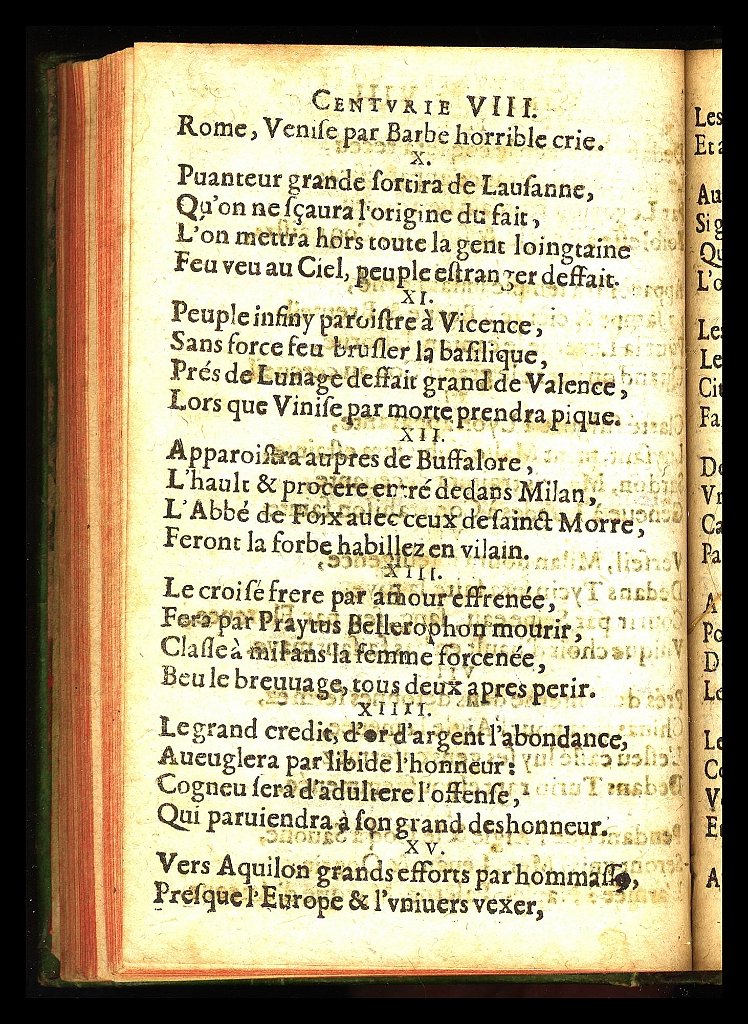 CENTVRIE VIII.
Rome, Veniſe par Barbe horrible crie.
X.
Puanteur grande ſortira de Lauſanne,
Qu'on ne ſçaura l'origine du fait,
L'on mettra hors toute la gent loingtaine
Feu veu au Ciel, peuple eſtranger deffait.
XI.
Peuple infiny paroiſtre à Vicence,
Sans force feu bruſler la baſilique,
Prés de Lunage deffait grand de Valence,
Lors que Viniſe par morte prendra pique.
XII.
Apparoiſtra aupres de Buffalore,
L'hault & procere entré dedans Milan,
L'Abbé de Foix auec ceux de ſainct Morre,
Feront la forbe habillez en vilain.
XIII.
Le croiſé frere par amour effrenée,
Fera par Praytus Bellerophon mourir,
Claſſe à mil ans la femme forcenée,
Beu le breuuage, tous deux apres perir.
XIIII.
Le grand credit, d'or d'argent l'abondance,
Aueuglera par libide l'honneur:
Cogneu ſera d'adultere l'offenſe,
Qui paruiendra à ſon grand deshonneur.
XV.
Vers Aquilon grands efforts par hommaſſe,
Preſque l'Europe & l'vniuers vexer,
Les
Et
Au
Sig
Qu
L'o
Les
Le
Cit
Fa
De
Vn
Ca
Pa
A
Po
D
Le
Le
Co
V
E
A